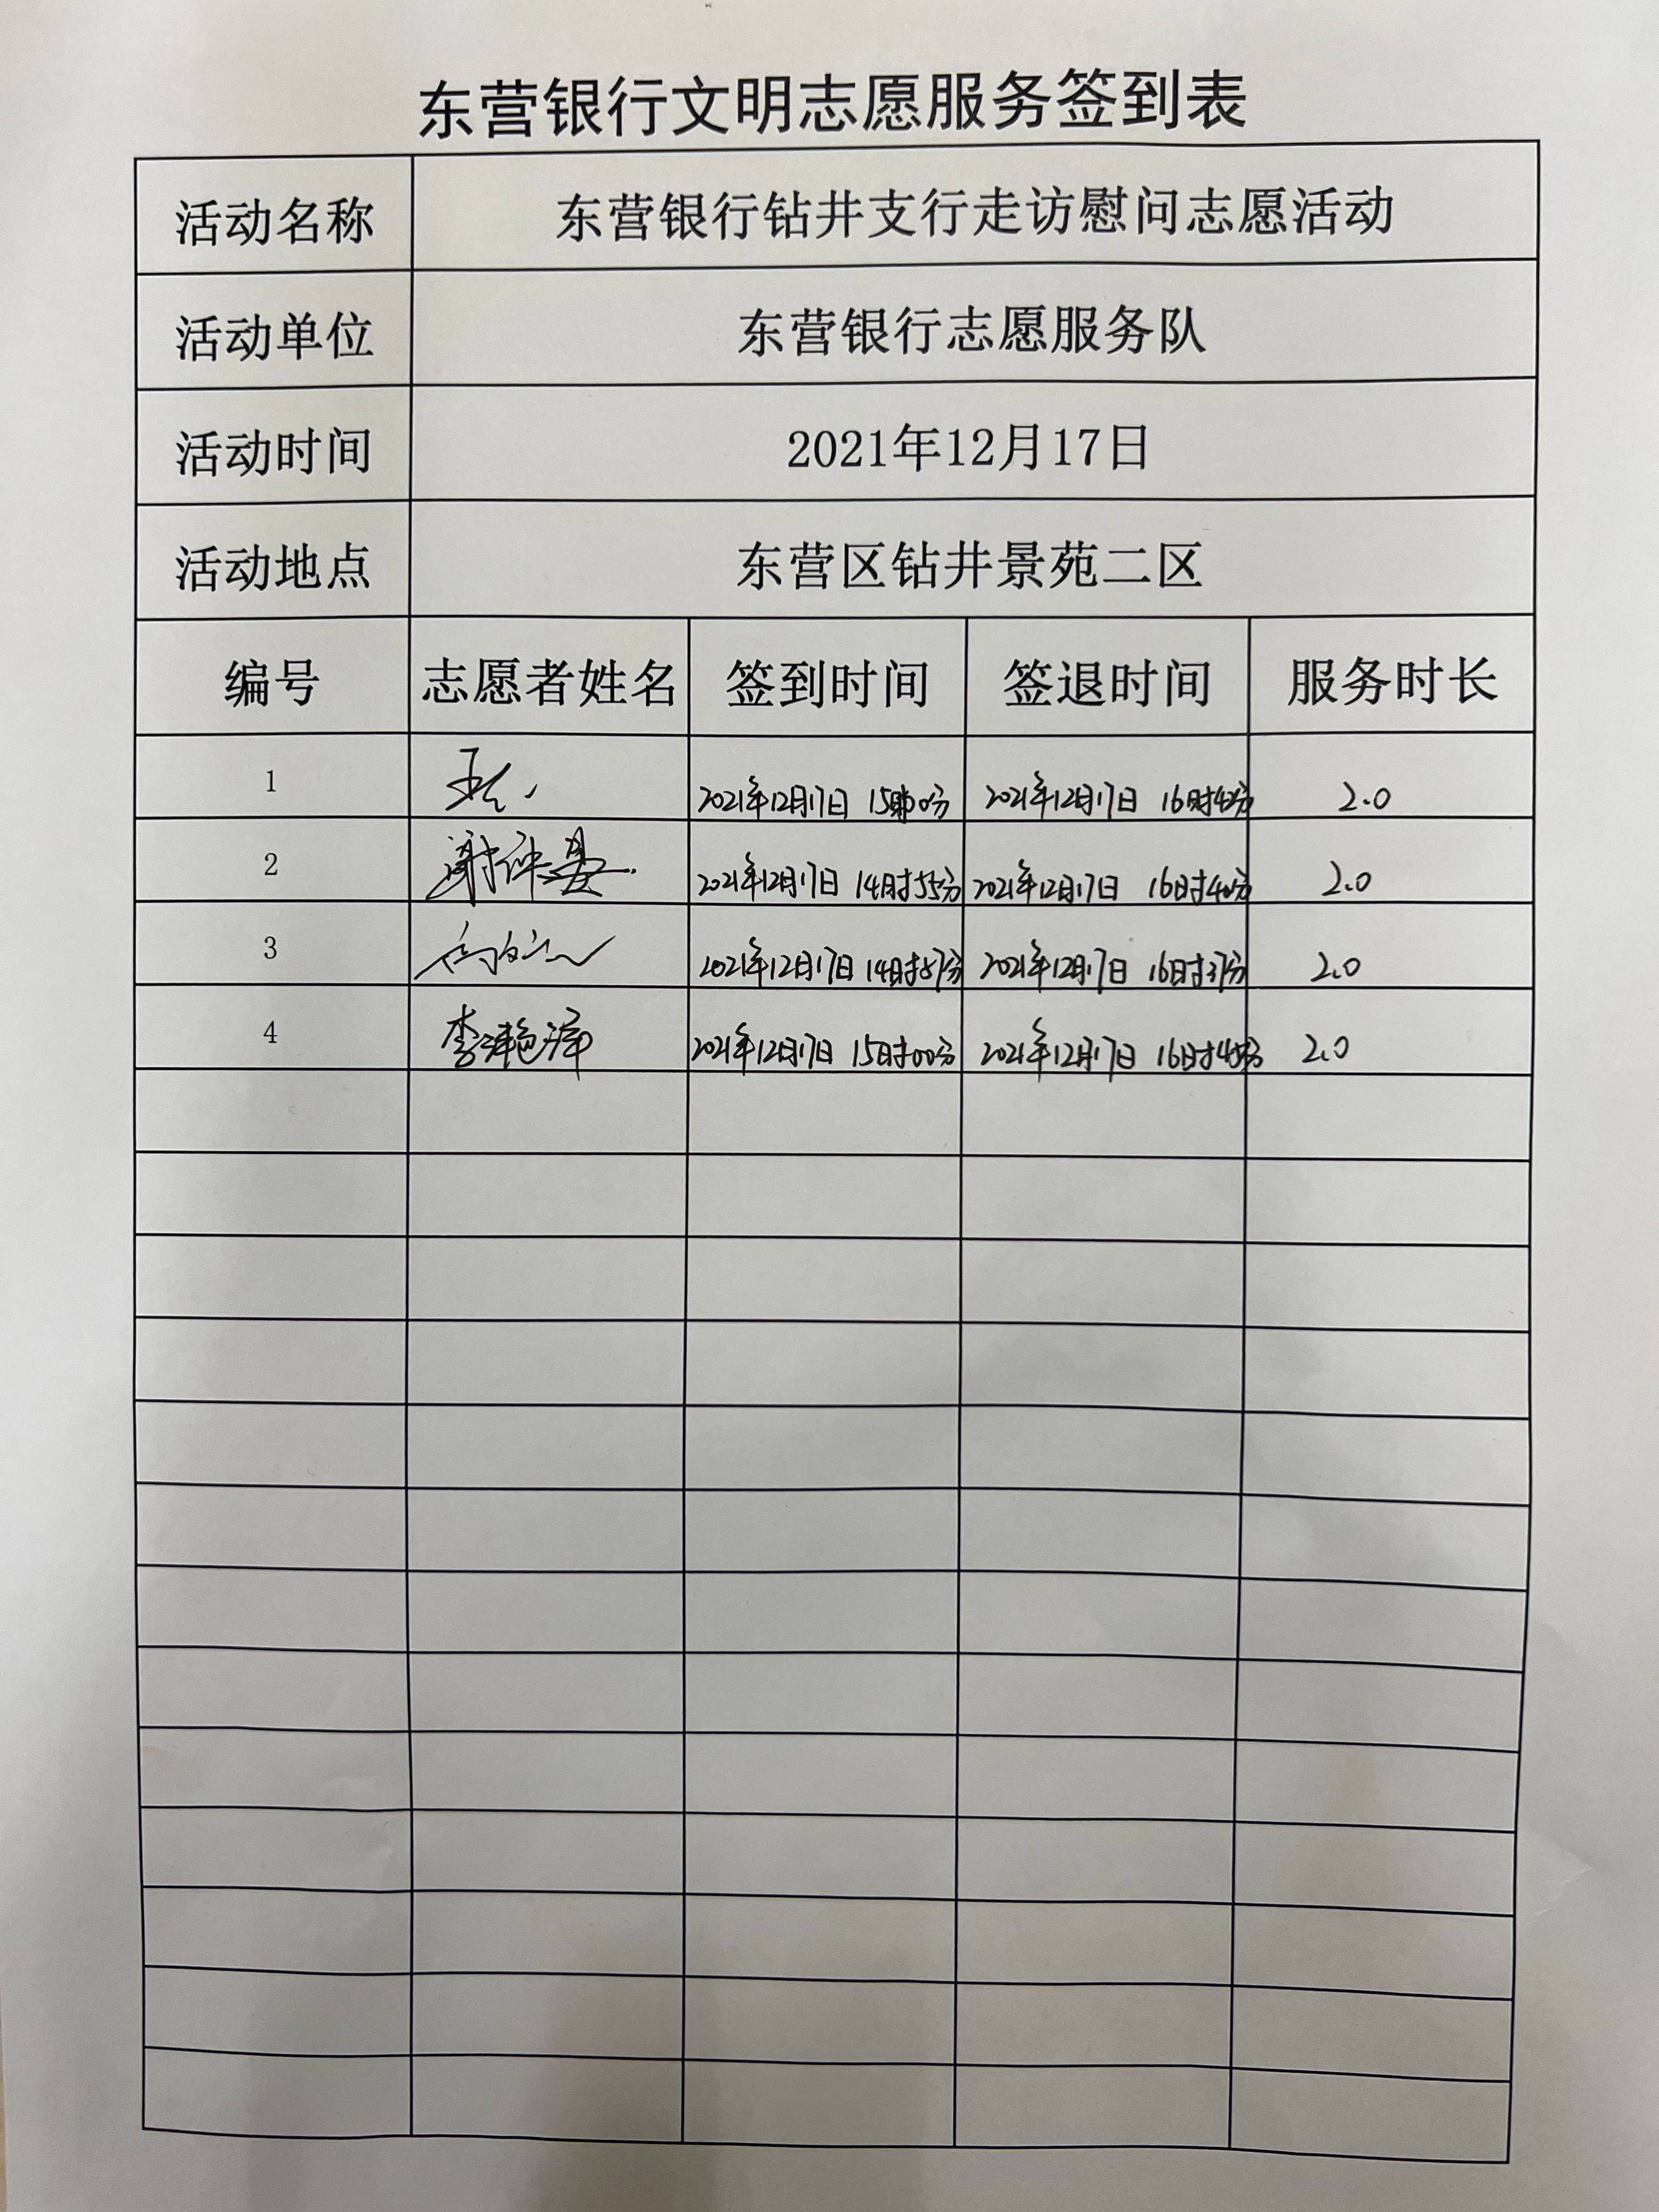 东营银行文明志愿服务签到表
活动名称 东营银行钻井支行走访慰问志愿活动
活动单位 东营银行志愿服务队
活动时间 2021年12月17日
活动地点 东营区钻井景苑二区
编号 志愿者姓名 签到时间 签退时间 服务时长
1 2021年12月17日 2021年12月17日 2.0
2 2021年12月17日 14时55分 2021年12月17日 16时40分 2.0
3 2021年12月17日 14时57分 2021年12月17日 16时37分 2.0
4 2021年12月17日 15时00分 2021年12月17日 2.0